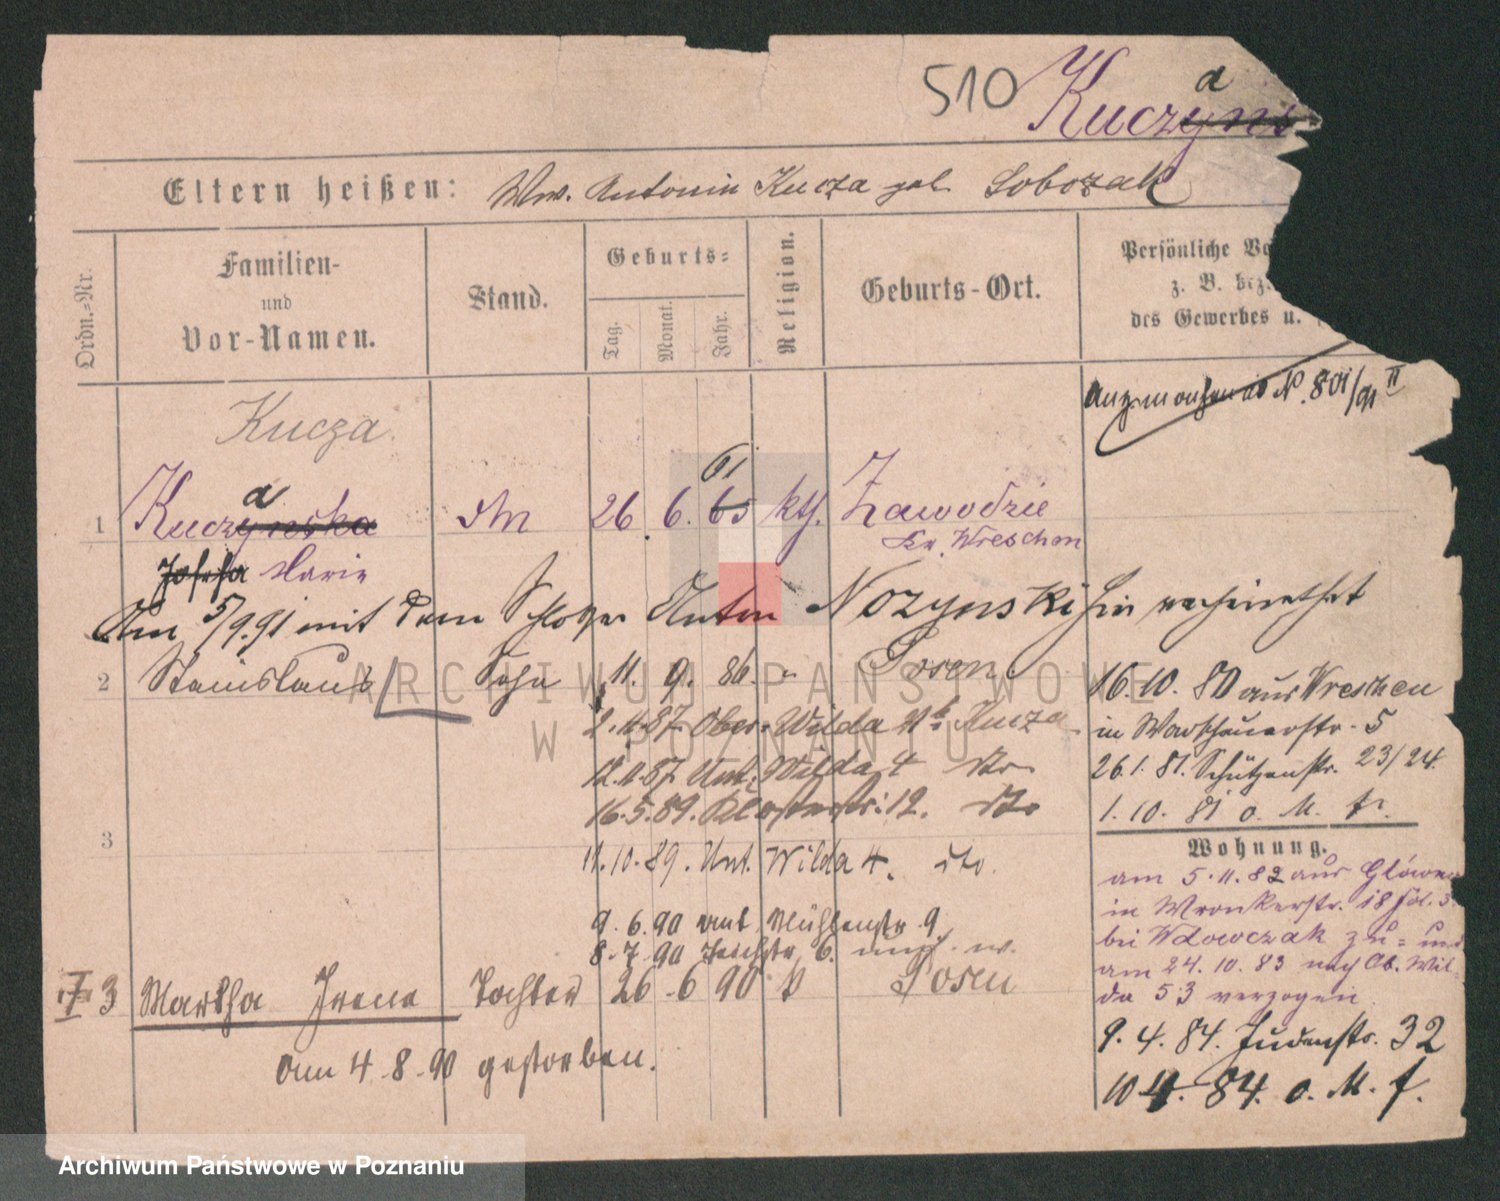 510 Kuczyns
a
Eltern heißen: Ww. Antonin Kucza geb. Sobczak
Ordn.-Nr.
Familien- und Vor-Namen.
Stand.
Geburts-
Tag.
Monat.
Jahr.
Religion.
Geburts-Ort.
Persönliche
z. B. bez.
des Gewerbes u.
No. 801/91 II
Kucza.
a
61
1 Kuczynska 26 6. 65 kth. Zawodzie
Kr. Wreschen
Josefa Marie
Am 5/9.91 mit dem Schlosser Anton Nozynski hier verheirathet
2 Stanislaus Sohn 11. 9. 86. Posen
16.10.80 aus Wreschen
in Warschauerstr. 5
26.1.81. Schützenstr. 23/24.
1.10.81 o. M. f.
2.11.87 Ober-Wilda Kucza
12.11.87 Unt. Wilda 4 dto
16.5.89. Klosterstr. 12. dto
3
11.10.89. Unt. Wilda 4. dto.
9.6.90 Mühlenstr 9.
8.7.90 Teichstr 6.
3 Martha Irena Tochter 26 6 90 Posen
Am 4.8.90 gestorben.
Wohnung.
am 5.11.82 aus Glowno
in Wronkerstr. 18
bei Wdowczak zu- und
am 24.10.83 nach Ob. Wil-
da 53 verzogen.
9.4.84. Judenstr. 32
10 4. 84. o. M. f.
ARCHIWUM PAŃSTWOWE
W POZNANIU
Archiwum Państwowe w Poznaniu